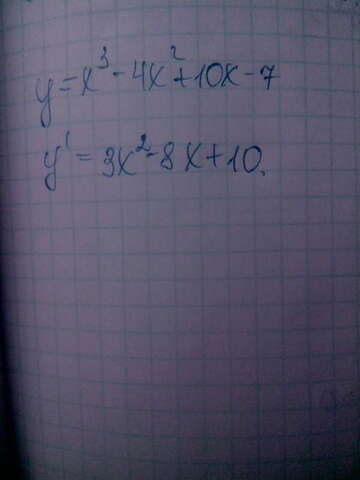 y=x³-4x²+10x-7
y'=3x²-8x+10.